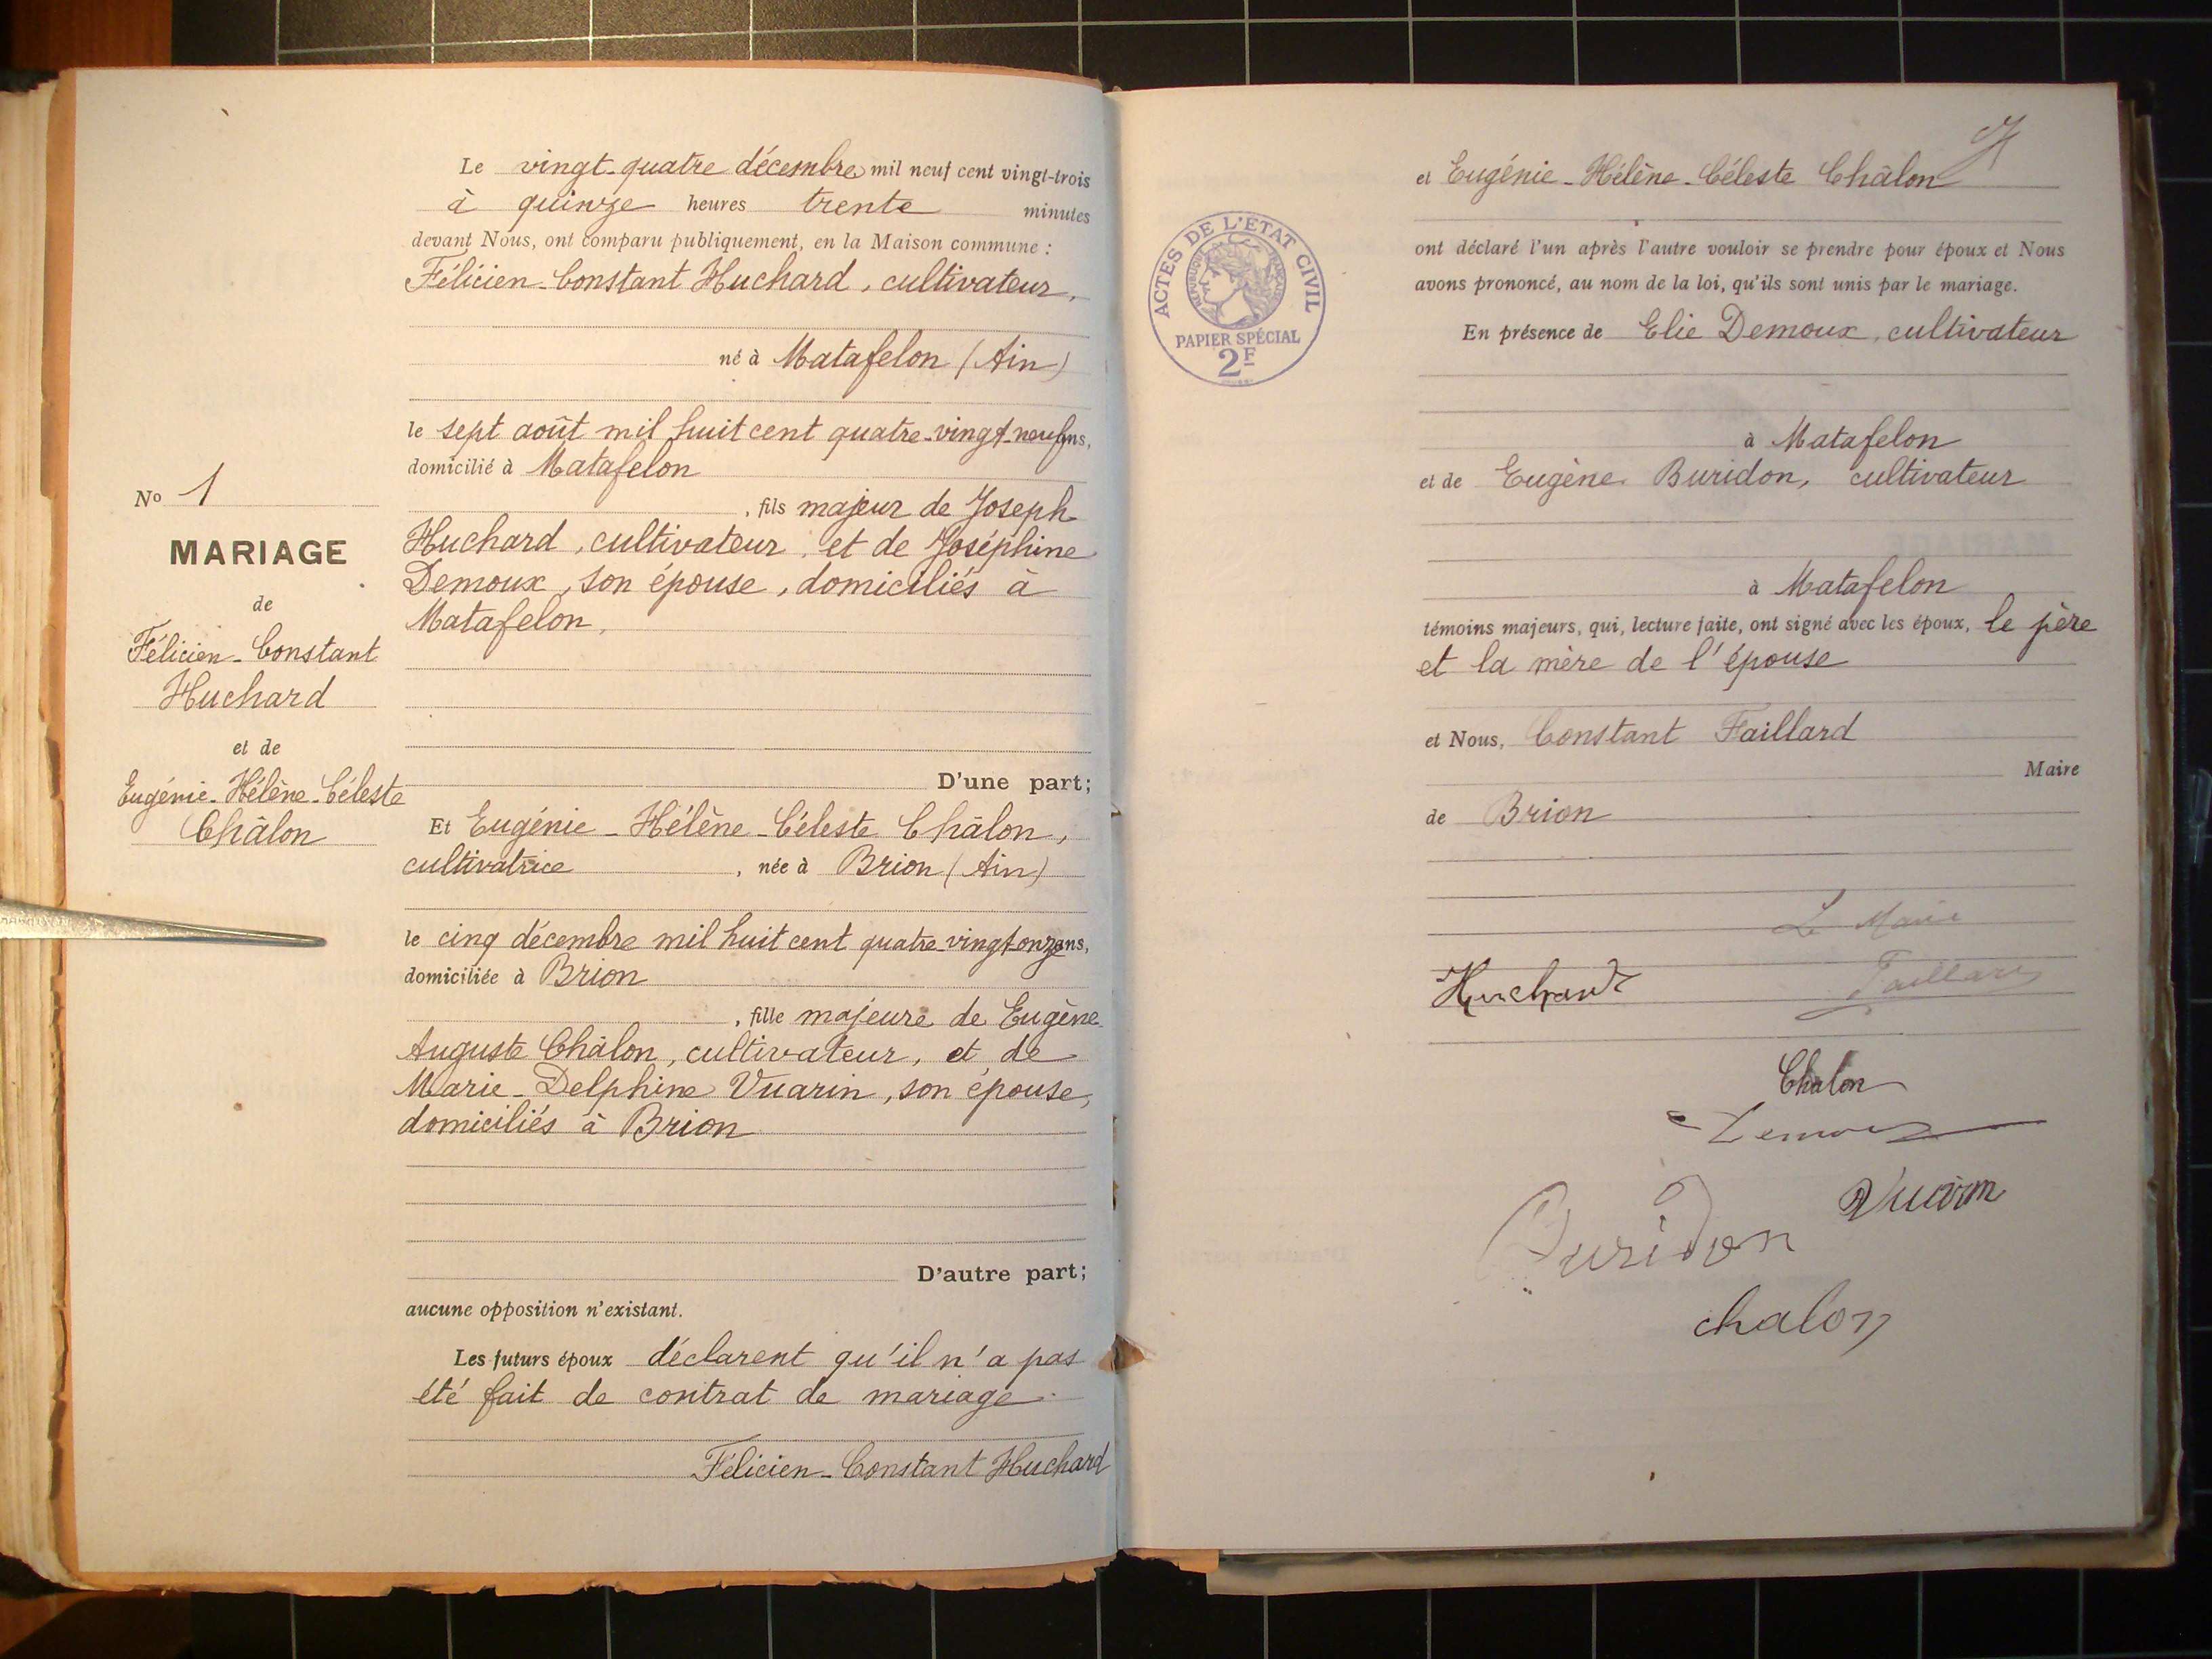 Le vingt-quatre décembre mil neuf cent vingt-trois
à quinze heures trente minutes
devant Nous, ont comparu publiquement, en la Maison commune :
Félicien-Constant Huchard, cultivateur,
né à Matafelon (Ain)
le sept août mil huit cent quatre-vingt-neuf ans,
domicilié à Matafelon
, fils majeur de Joseph
Huchard, cultivateur, et de Joséphine
Demoux, son épouse, domiciliés à
Matafelon,
D'une part;
No 1
MARIAGE
de
Félicien-Constant
Huchard
et de
Eugénie-Hélène-Céleste
Châlon
Et Eugénie-Hélène-Céleste Châlon,
cultivatrice, née à Brion (Ain)
le cinq décembre mil huit cent quatre-vingt-onze ans,
domiciliée à Brion
, fille majeure de Eugène
Auguste Châlon, cultivateur, et de
Marie-Delphine Vuarin, son épouse,
domiciliés à Brion
D'autre part;
aucune opposition n'existant.
Les futurs époux déclarent qu'il n'a pas
été fait de contrat de mariage.
Félicien-Constant Huchard
et Eugénie-Hélène-Céleste Châlon
ont déclaré l'un après l'autre vouloir se prendre pour époux et Nous
avons prononcé, au nom de la loi, qu'ils sont unis par le mariage.
ACTES DE L'ÉTAT CIVIL
RÉPUBLIQUE FRANÇAISE
PAPIER SPÉCIAL
2F
En présence de Elie Demoux, cultivateur
à Matafelon
et de Eugène Buridon, cultivateur
à Matafelon
témoins majeurs, qui, lecture faite, ont signé avec les époux, le père
et la mère de l'épouse
et Nous, Constant Faillard
Maire
de Brion
Le Maire
Huchard
Faillard
Chalon
Demoux
Vuarin
Buridon
chalon